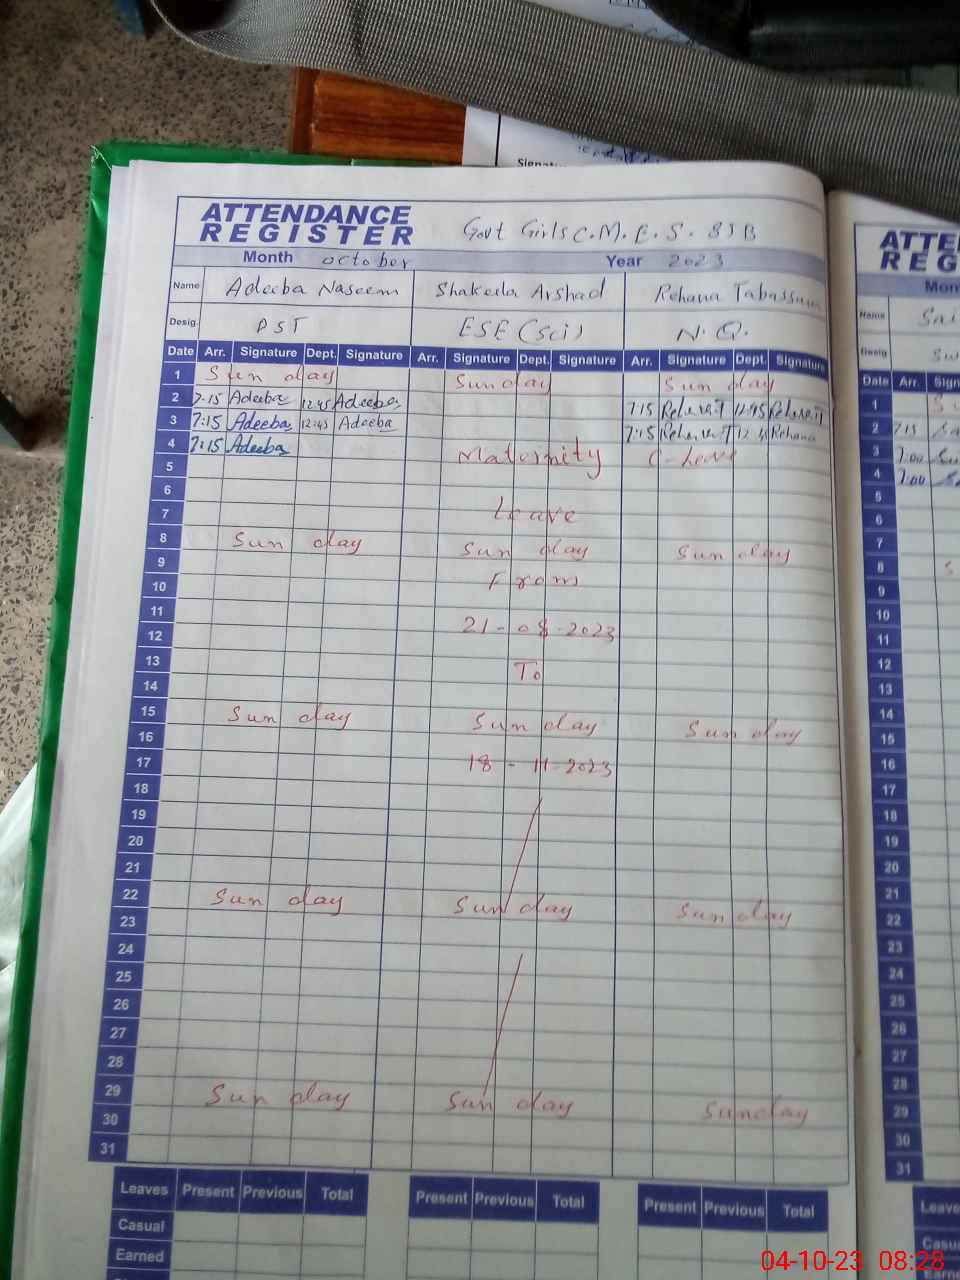 Signatu
ATTENDANCE
REGISTER
Govt Girls C.M.E.S. 8JB
Month October Year 2023
Name Adeeba Naseem Shakeela Arshad Rehana Tabassum
Desig. PST ESE (Sci) N.Q.
Date Arr. Signature Dept. Signature Arr. Signature Dept. Signature Arr. Signature Dept. Signature
1 Sunday Sunday Sunday
2 7:15 Adeeba 12:45 Adeeba 7:15 12:45
3 7:15 Adeeba 12:45 Adeeba 7:15 Rehana
4 7:15 Adeeba Maternity C-Leave
5
6
7 Leave
8 Sunday Sunday Sunday
9 From
10
11 21-08-2023
12
13 To
14
15 Sunday Sunday Sunday
16
17 18-11-2023
18
19
20
21
22 Sunday Sunday Sunday
23
24
25
26
27
28
29 Sunday Sunday Sunday
30
31
Leaves Present Previous Total Present Previous Total Present Previous Total
Casual
Earned
ATTE
REG
Mon
Name Sai
Desig. Sw
Date Arr. Sign
1 S
2 7:15
3 7:00
4 7:00
5
6
7
8 S
9
10
11
12
13
14
15
16
17
18
19
20
21
22
23
24
25
26
27
28
29
30
31
Leave
Casua
Earne
04-10-23 08:28